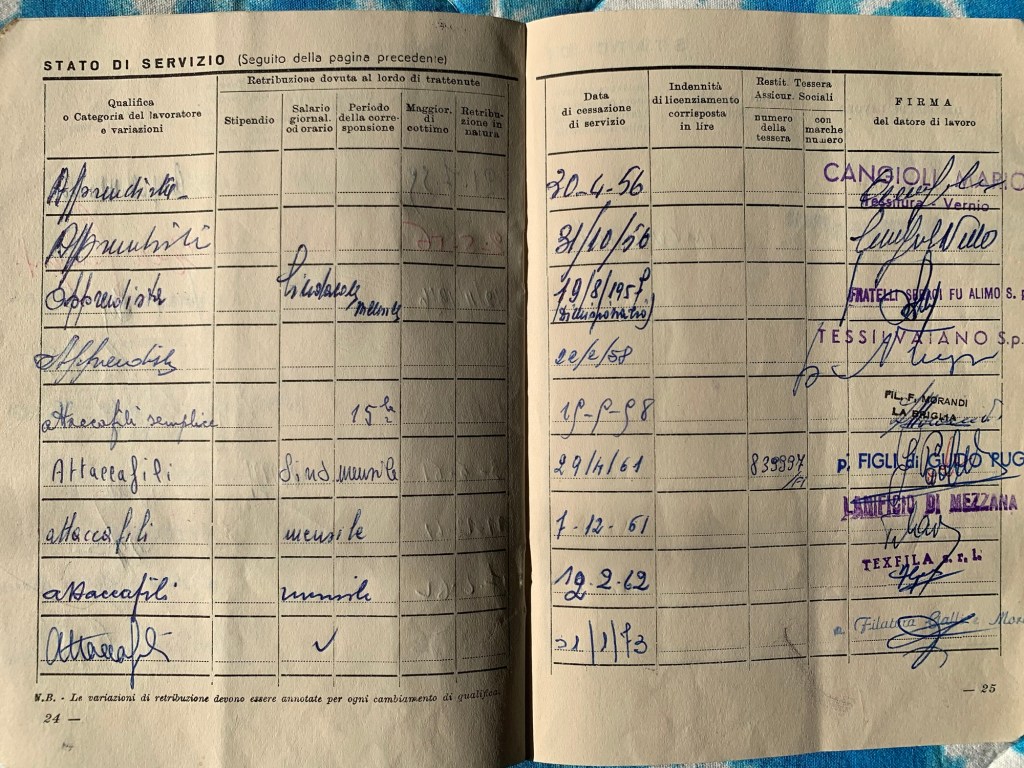 STATO DI SERVIZIO (Seguito della pagina precedente)
Qualifica
o Categoria del lavoratore
e variazioni
Retribuzione dovuta al lordo di trattenute
Stipendio
Salario
giornal.
od orario
Periodo
della corre-
sponsione
Maggior. di
cottimo
Retribu-
zione in
natura
Apprendista
Apprendista
Apprendista Sindacale mensile
Apprendista
attaccafili semplice 15
Attaccafili Sind mensile
attaccafili mensile
attaccafili mensile
Attaccafili
N.B. - Le variazioni di retribuzione devono essere annotate per ogni cambiamento di qualifica.
24 —
Data
di cessazione
di servizio
Indennità
di licenziamento
corrisposta
in lire
Restit. Tessera
Assicur. Sociali
numero
della
tessera
con
marche
numero
FIRMA
del datore di lavoro
30-4-56 CANGIOLI MARIO
Tessitura - Vernio
31/10/56
19/8/1957 FRATELLI FU ALIMO S.p
TESSILVAIANO S.p.
22/2/58
FIL. F. MORANDI
LA BRIGLIA
29/4/61 839897 p. FIGLI di GUIDO RUG
LANIFICIO DI MEZZANA
7-12-61
TEXFILA s.r.l.
19.2.62
Filatura
/1/73
— 25